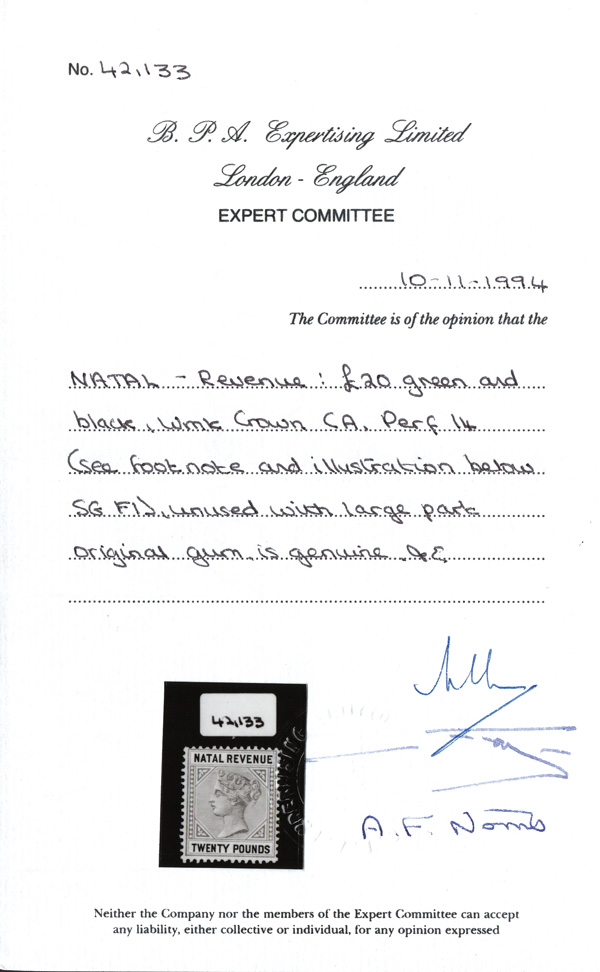 No. 42,133
B. P. A. Expertising Limited
London - England
EXPERT COMMITTEE
10-11-1994
The Committee is of the opinion that the
NATAL - Revenue: £20 green and
black, Wmk Crown CA, Perf 14
(see footnote and illustration below
SG F1), unused with large part
original gum, is genuine.
42,133
NATAL REVENUE
TWENTY POUNDS
A. F. Norris
Neither the Company nor the members of the Expert Committee can accept
any liability, either collective or individual, for any opinion expressed